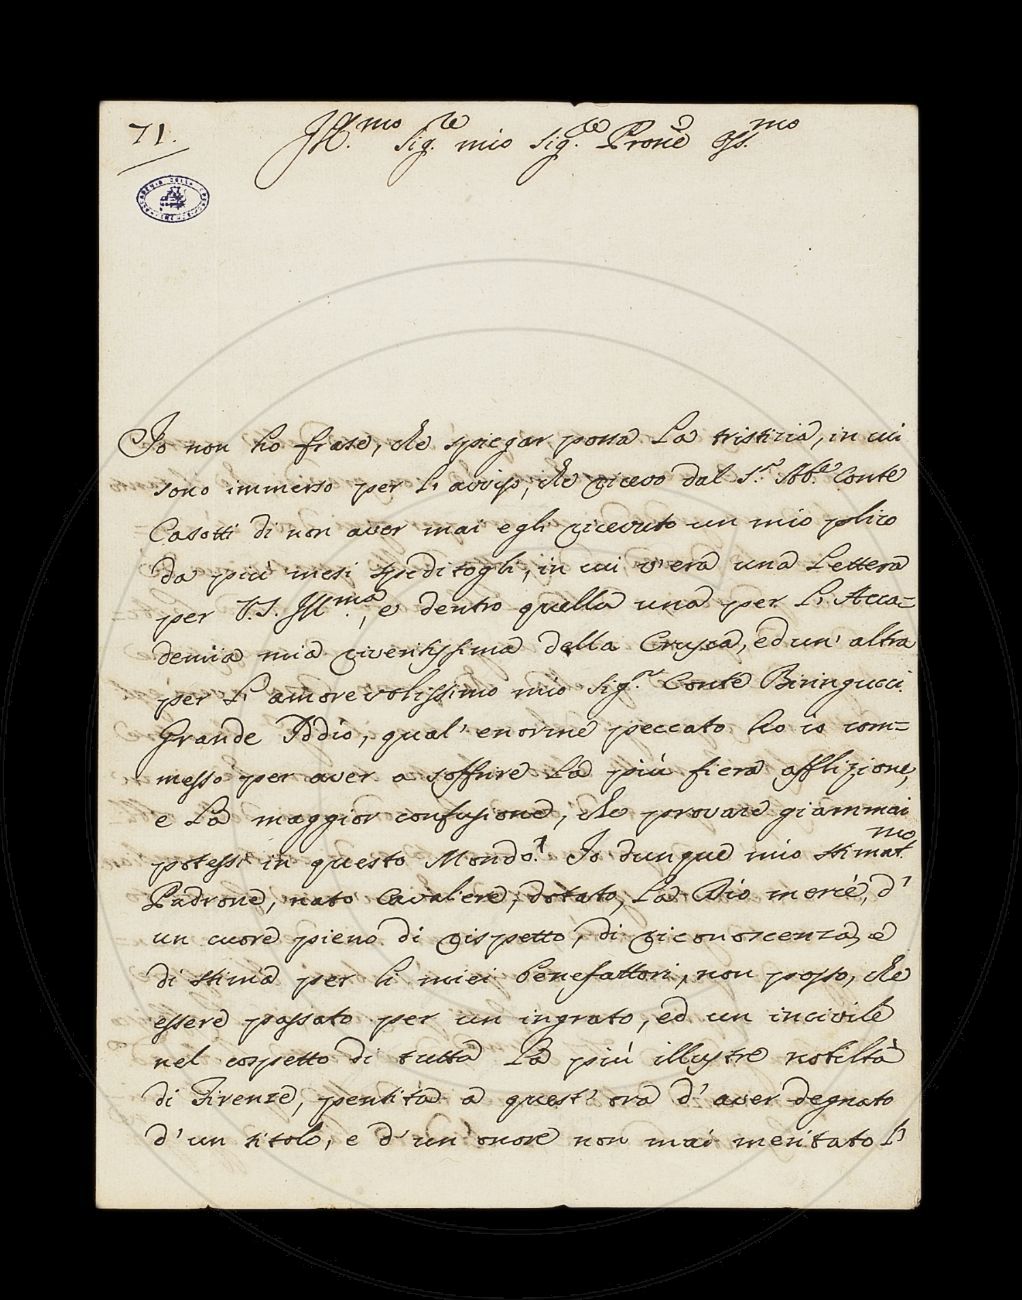 71.
Ill.mo Sig.re mio Sig.re Prone Oss.mo
Io non ho frase, che spiegar possa la tristizia, in cui
sono immerso per l'avviso, che ricevo dal S.r Ab.e Conte
Casotti di non aver mai egli ricevuto un mio plico
da più mesi speditogli, in cui v'era una Lettera
per V.S. Ill.ma, e dentro quella una per l'Acca=
demia mia riveritissima della Crusca, ed un' altra
per l'amorevolissimo mio Sig.r Conte Biringucci.
Grande Iddio, qual' enorme peccato ho io com=
messo per aver a soffrire la più fiera afflizione,
e la maggior confusione, che provare giammai
potessi in questo Mondo! Io dunque mio stimat.mo
Padrone, nato Cavaliere, dotato, la Dio mercè, d'
un cuore pieno di rispetto, di riconoscenza, e
di stima per li miei benefattori, non posso, che
essere passato per un ingrato, ed un incivile
nel cospetto di tutta la più illustre nobiltà
di Firenze, pentita a quest' ora d' aver degnato
d' un titolo, e d' un' onore non mai meritato